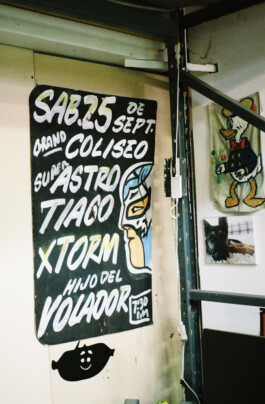 SAB. 25 DE
SEPT.
GRAND COLISEO
SUPER ASTRO
TIAGO
XTORM
HIJO DEL
VOLADOR
7:30
P.M